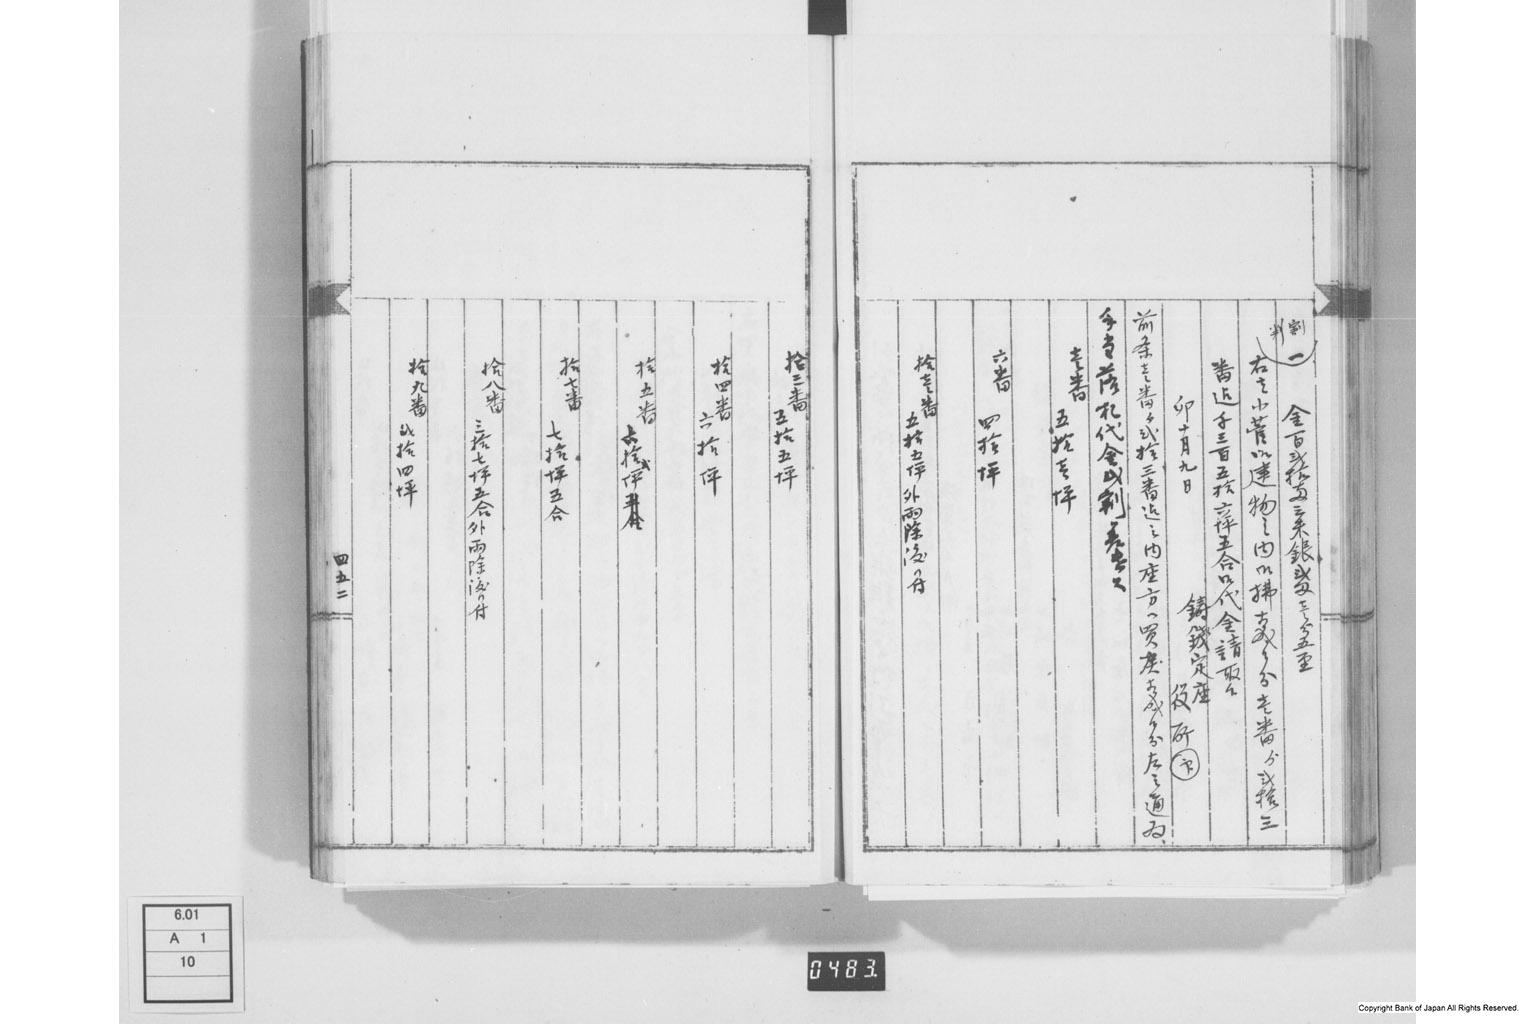 割判
一 金百弐拾両三朱銀弐匁壱分五厘
右者小菅御建物之内御拂相成候分壱番ゟ弐拾三
番迄千三百五拾六坪五合御代金請取候
卯十月九日
鋳銭定座
役所 印
前条壱番ゟ弐拾三番迄之内座方へ買広相成候分左之通為
手当落札代金
壱番 五拾壱坪
六番 四拾坪
拾壱番 五拾五坪 外雨除
拾三番 五拾五坪
拾四番 六拾坪
拾五番 六拾弐坪
拾七番 七拾坪五合
拾八番 三拾七坪五合 外雨除
拾九番 弐拾四坪
四五二
6.01
A 1
10
0483.
Copyright Bank of Japan All Rights Reserved.